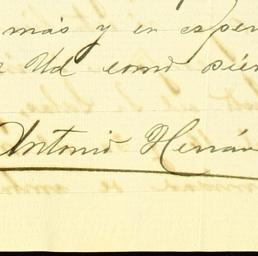 más y en esper
Ud como siem
Antonio Hernán